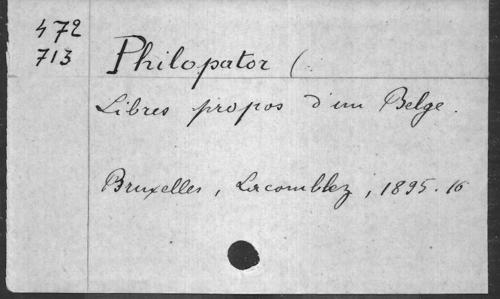 472
713
Philopator (
Libres propos d'un Belge.
Bruxelles, Lacomblez, 1895. 16